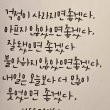 걱정이 사라지면 좋겠다.
아프지 않았으면 좋겠다.
잘 됐으면 좋겠다.
불안하지 않았으면 좋겠다.
내일은 오늘보다 더 많이
웃었으면 좋겠다.